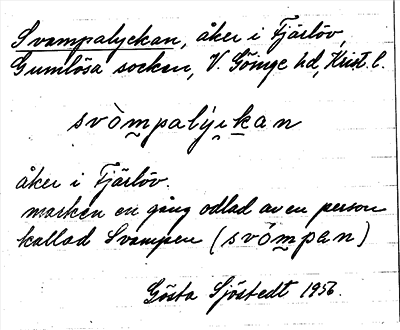 Svampalyckan, åker i Fjärlöv,
Gumlösa socken, V. Göinge hd, Krist. l.
svòm̰palýḭḵan
åker i Fjärlöv.
marken en gång odlad av en person
kallad Svampen (svòm̰pan)
Gösta Sjöstedt 1956.